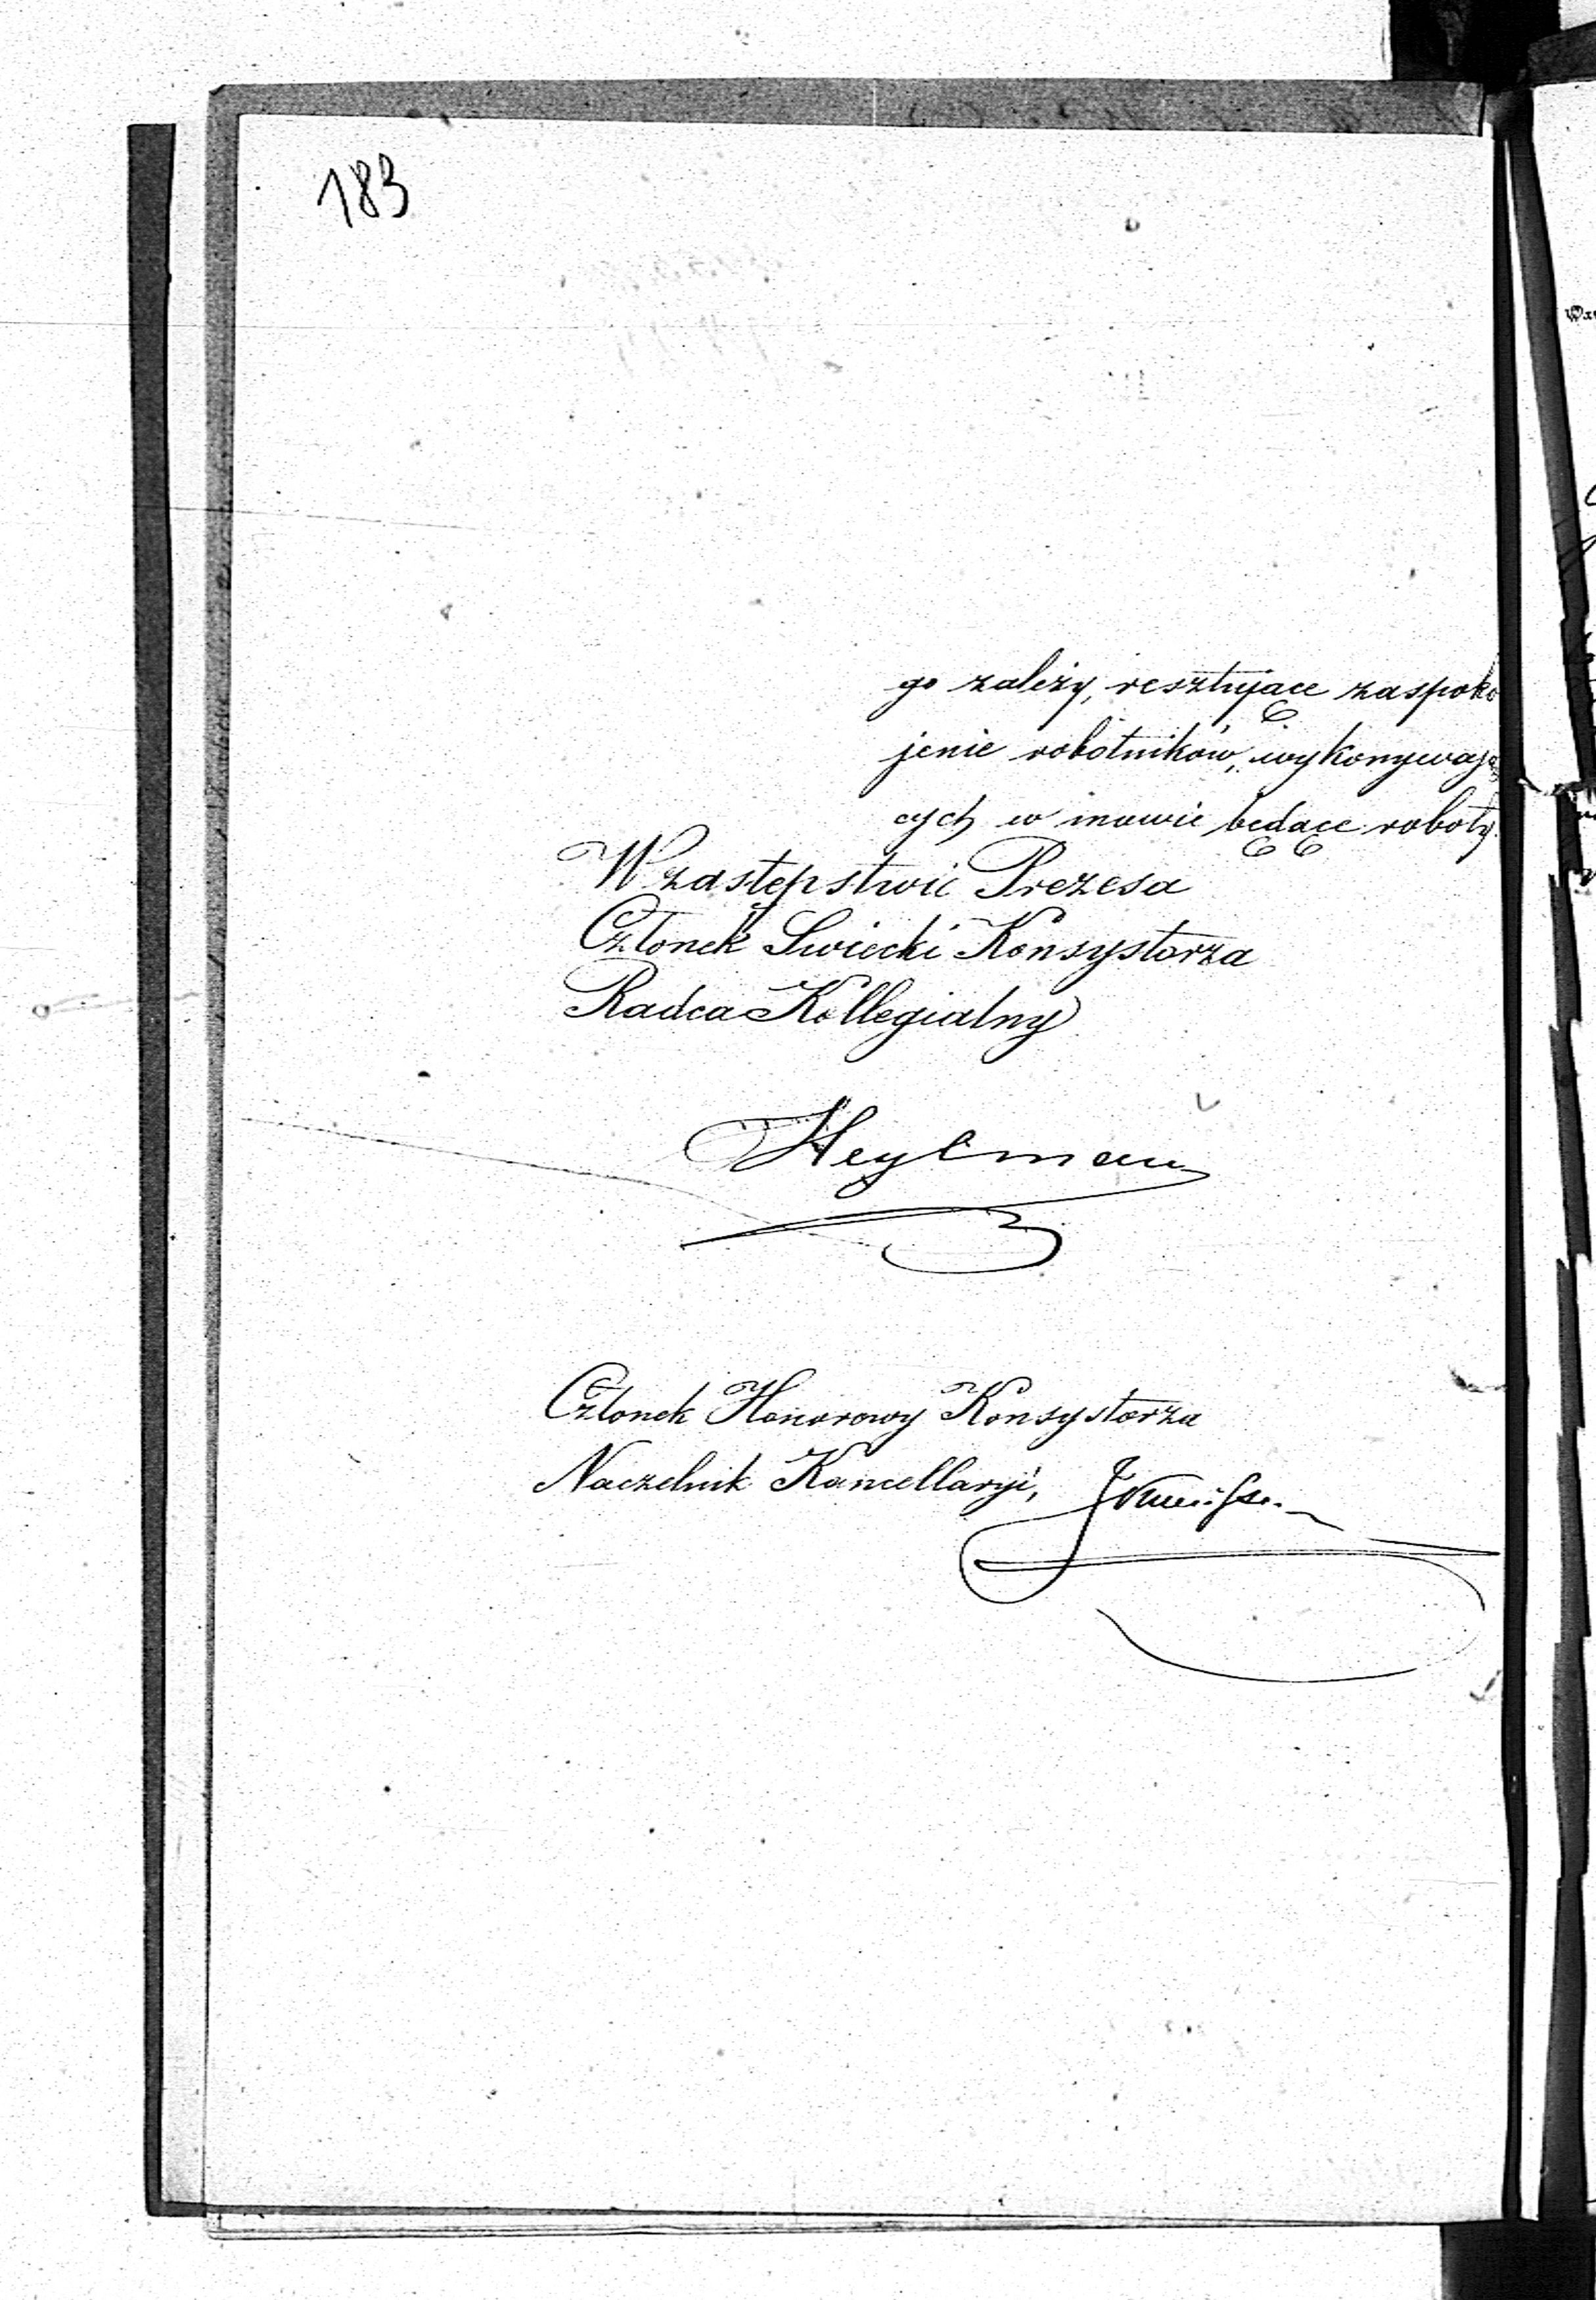 183
go zależy, resztujące zaspoko
jenie robotników, wykonywają
cych w mowie będące roboty.
W zastępstwie Prezesa
Członek Swiecki Konsystorza
Radca Kollegialny
Heylman
Członek Honorowy Konsystorza
Naczelnik Kancellaryi,